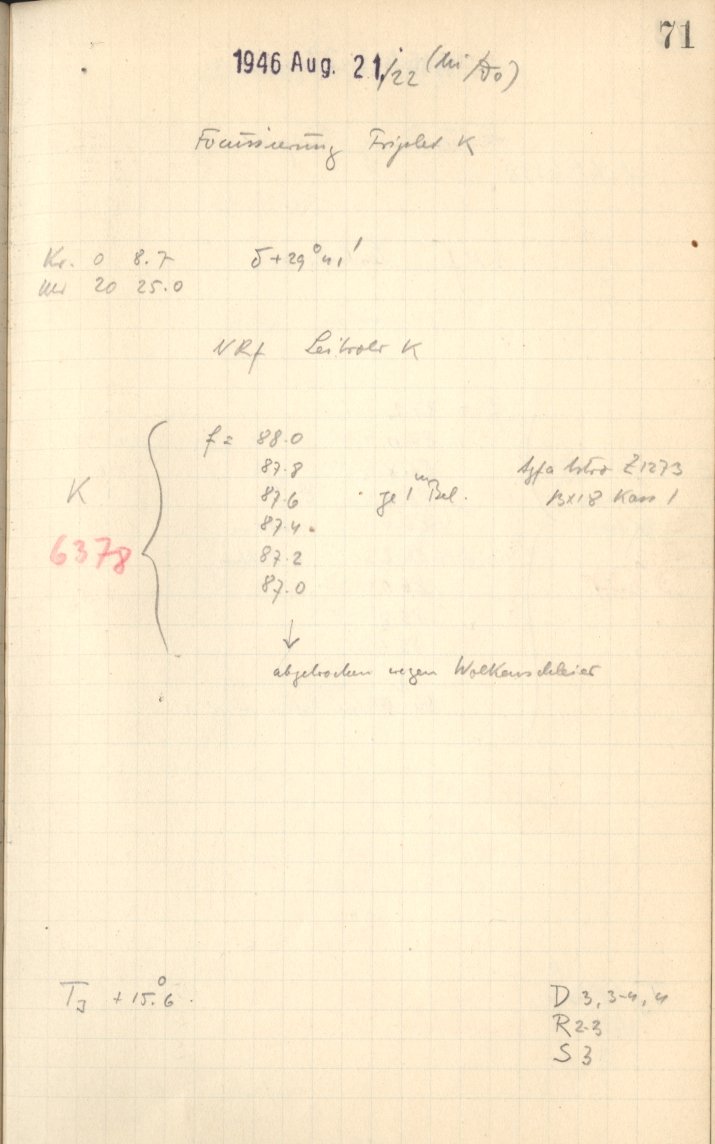 71
1946 Aug. 21./22 (Mi/Do)
Focussierung Triplet K
Kr. 0 8.7 δ+29° 41'
Ur 20 25.0
NRf Leitrohr K
f = 88.0
87.8
K 87.6 je 1ᵐ Bel. Agfa Astro Z1273
87.4 13x18 Kass 1
6378 87.2
87.0
↓
abgebrochen wegen Wolkenschleier
T_J +15.°6
D 3, 3-4, 4
R 2-3
S 3